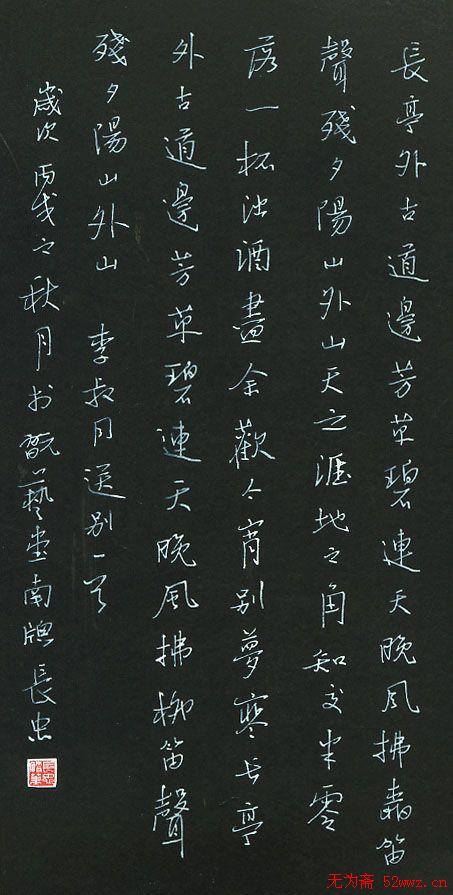 長亭外古道邊芳草碧連天晚風拂笛
聲殘夕陽山外山天之涯地之角知交半零
落一杯浊酒盡余歡今宵別夢寒長亭
外古道邊芳草碧連天晚風拂柳笛聲
殘夕陽山外山 李叔同送別一首
歲次丙戌之秋月於翫藝堂南牕長忠
无为斋 52wwz.cn